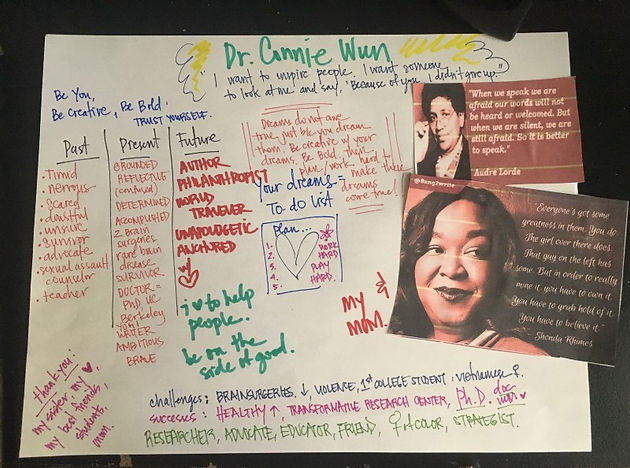 Dr. Connie Wun
"I want to inspire people. I want someone
to look at me and say, 'Because of you I didn't give up.'"
Be You,
Be Creative, Be Bold.
TRUST YOURSELF.
Past
· Timid
· nervous
· Scared
· doubtful
· unsure
· Survivor
· advocate
· sexual assault
counselor
· teacher
Present
GROUNDED
REFLECTIVE
(confused)
DETERMINED
ACCOMPLISHED
2 Brain
surgeries
rare brain
disease
SURVIVOR
DOCTOR =
PhD UC
Berkeley
WRITER
AMBITIOUS
BRAVE
Future
AUTHOR
PHILANTHROPIST
WORLD
TRAVELER
UNAPOLOGETIC
ANCHORED
w/
i ♥ to help
people.
be on the
side of good.
Dreams do not come
true just bc you dream
them. Be creative w/ your
dreams. Be Bold, then
plan / work hard to
make these
dreams
come true!
Your dreams =
To do list
plan...
1.
2.
3.
4.
5.
WORK
HARD
PLAY
HARD.
my &
mom.
"When we speak we are
afraid our words will not
be heard or welcomed. But
when we are silent, we are
still afraid. So it is better
to speak."
Audre Lorde
@Bang2write
"Everyone's got some
greatness in them. You do.
The girl over there does.
That guy on the left has
some. But in order to really
mine it, you have to own it.
You have to grab hold of it.
You have to believe it."
Shonda Rhimes
thank you:
my sister, my ♥
my best friends,
students,
mom.
challenges: BRAIN SURGERIES, ↓, VIOLENCE, 1st COLLEGE STUDENT: vietnamese ♀.
success: HEALTHY ↑ TRANSFORMATIVE RESEARCH CENTER, Ph.D. doc wun ♥
RESEARCHER, ADVOCATE, EDUCATOR, FRIEND, ♀ of COLOR, STRATEGIST.